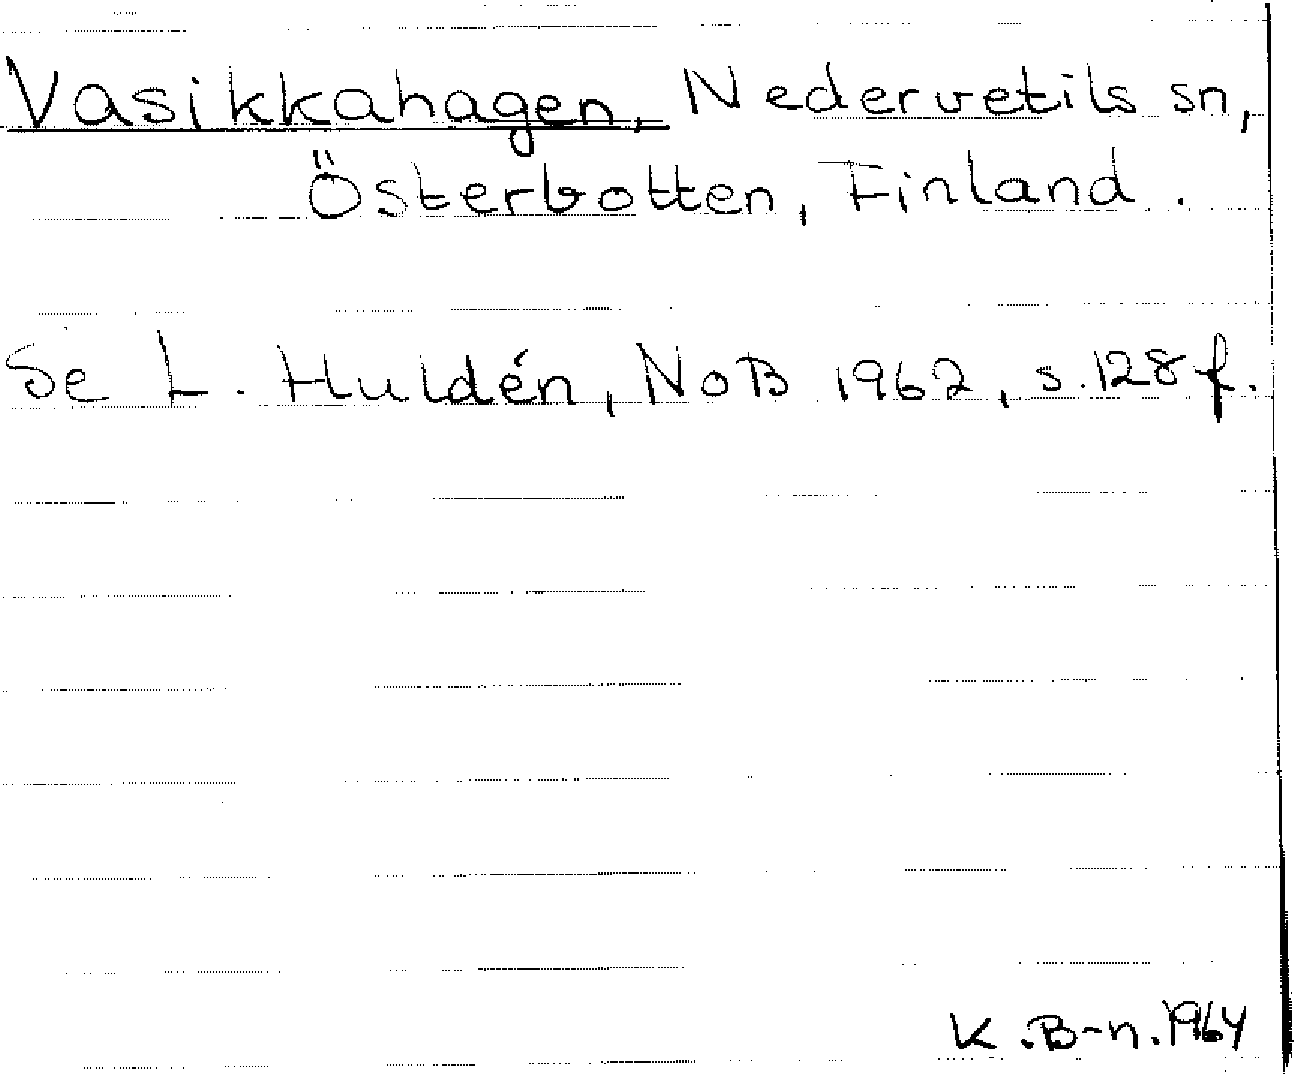 Vasikkahagen, Nedervetils sn,
Österbotten, Finland.
Se L. Huldén, NoB 1962, s.128 f.
K.B-n.1964